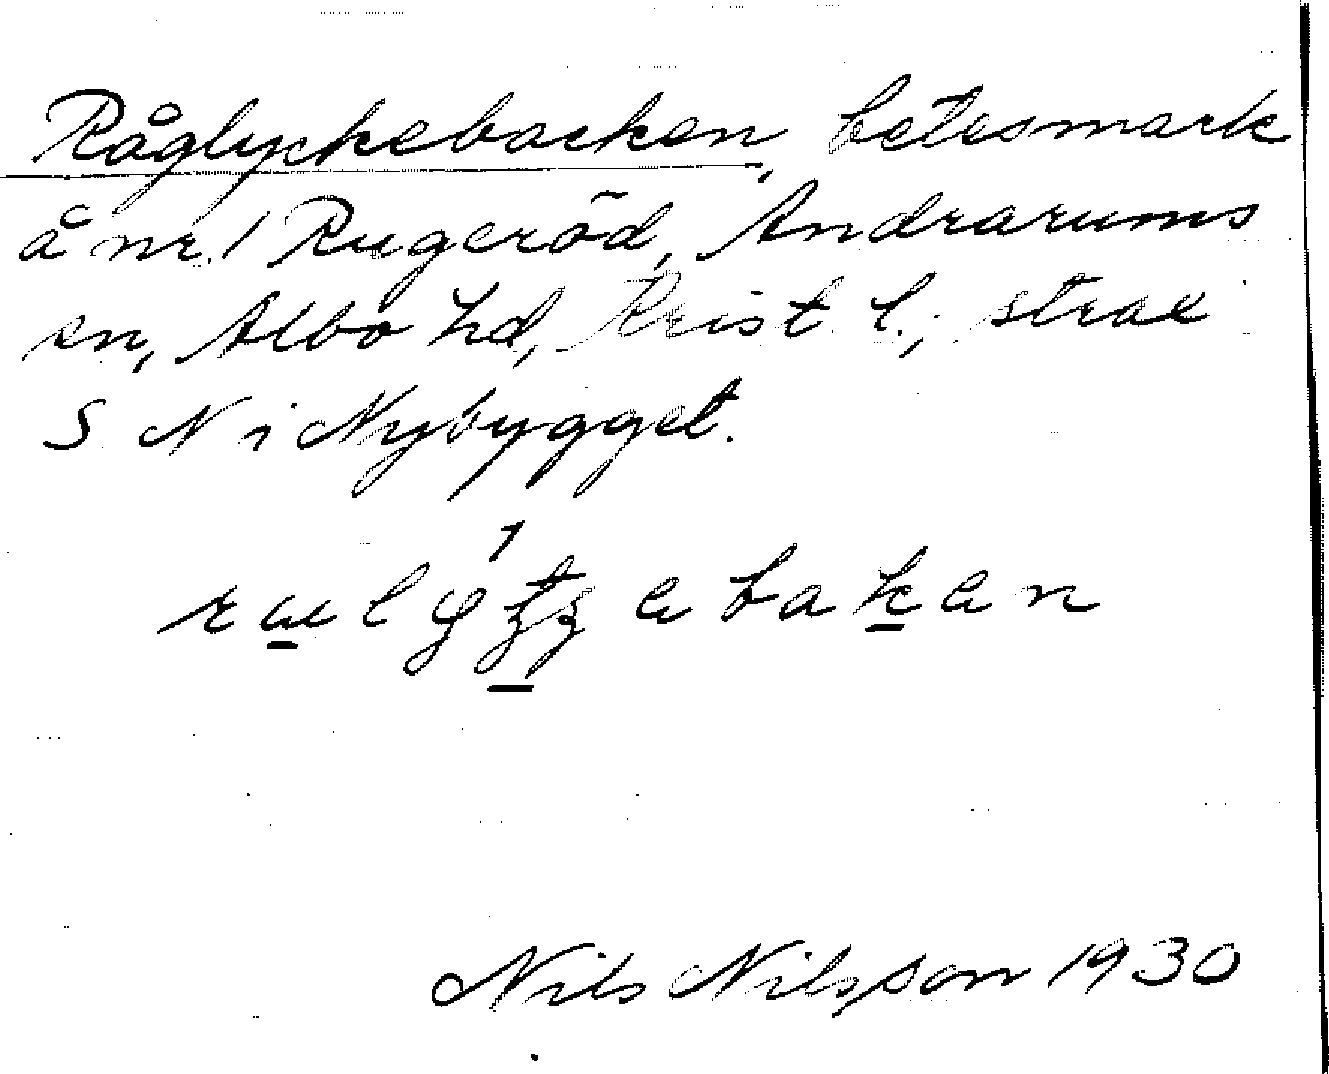 Råglyckebacken, betesmark
å nr. 1 Rugeröd, Andrarums
sn, Albo hd, Krist. l., strax
S N i Nybygget.
Nils Nilsson 1930